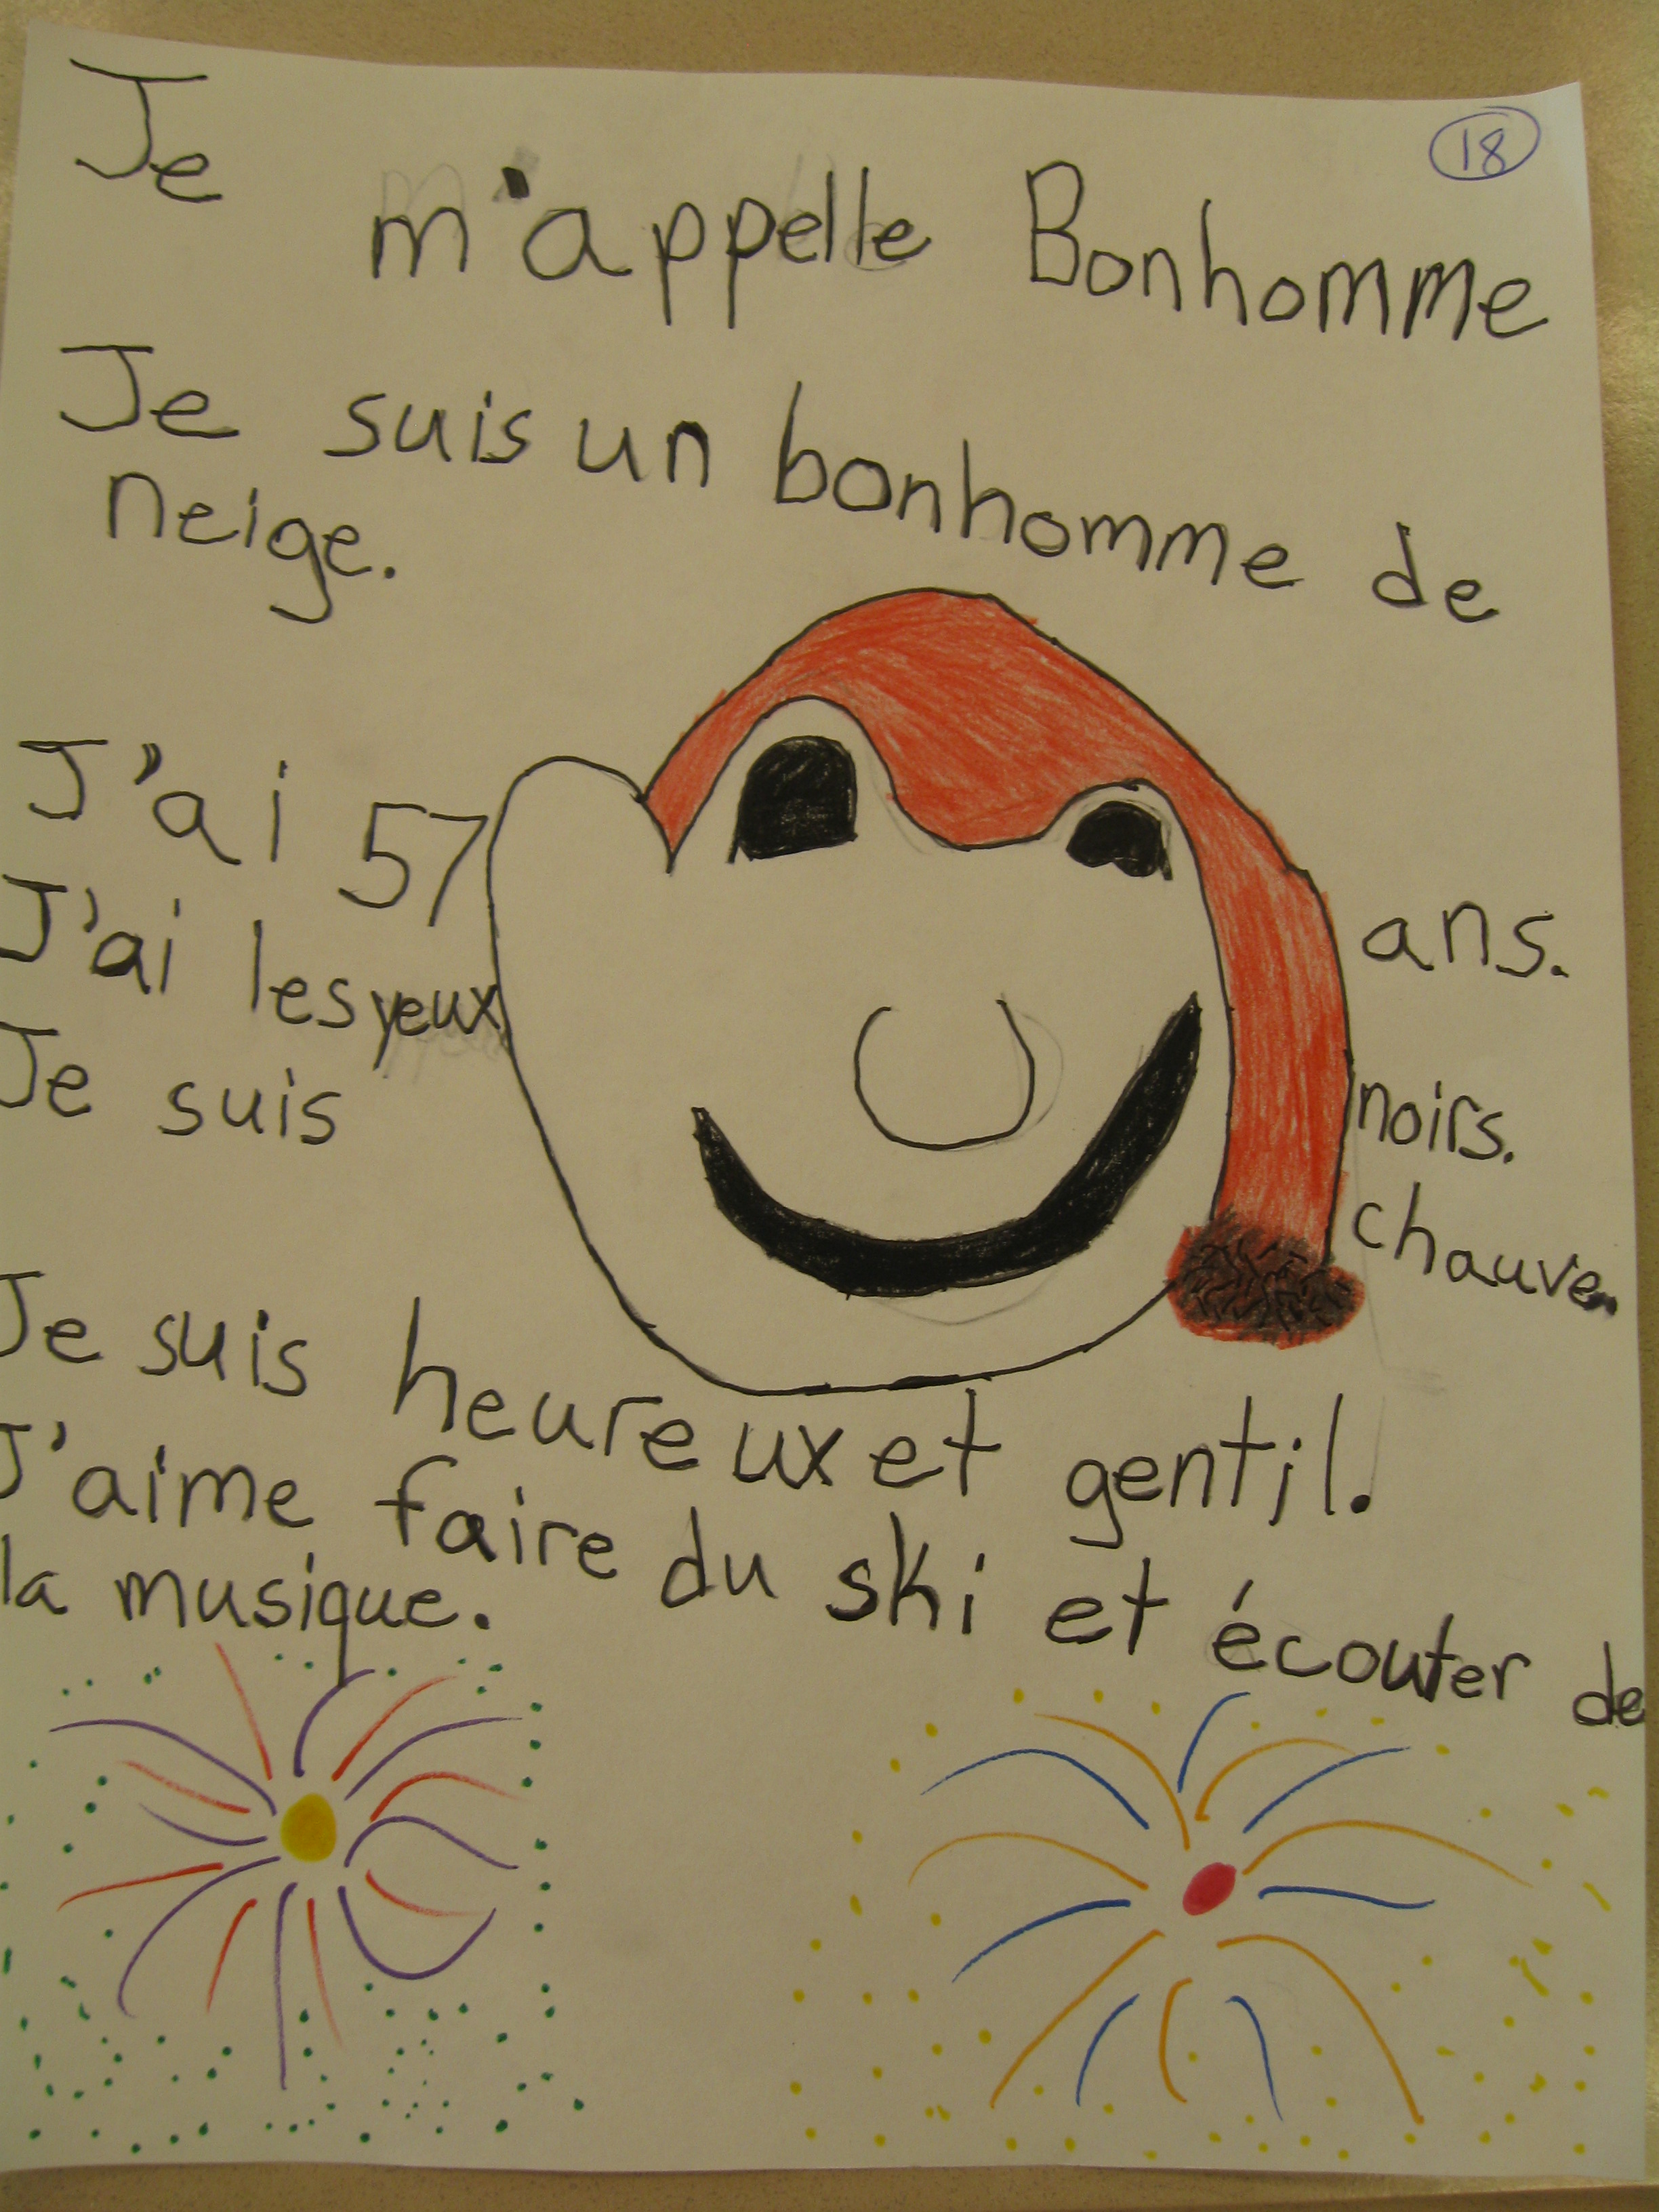 18
Je m'appelle Bonhomme
Je suis un bonhomme de
neige.
J'ai 57 ans.
J'ai les yeux noirs.
Je suis chauve.
Je suis heureux et gentil.
J'aime faire du ski et écouter de
la musique.